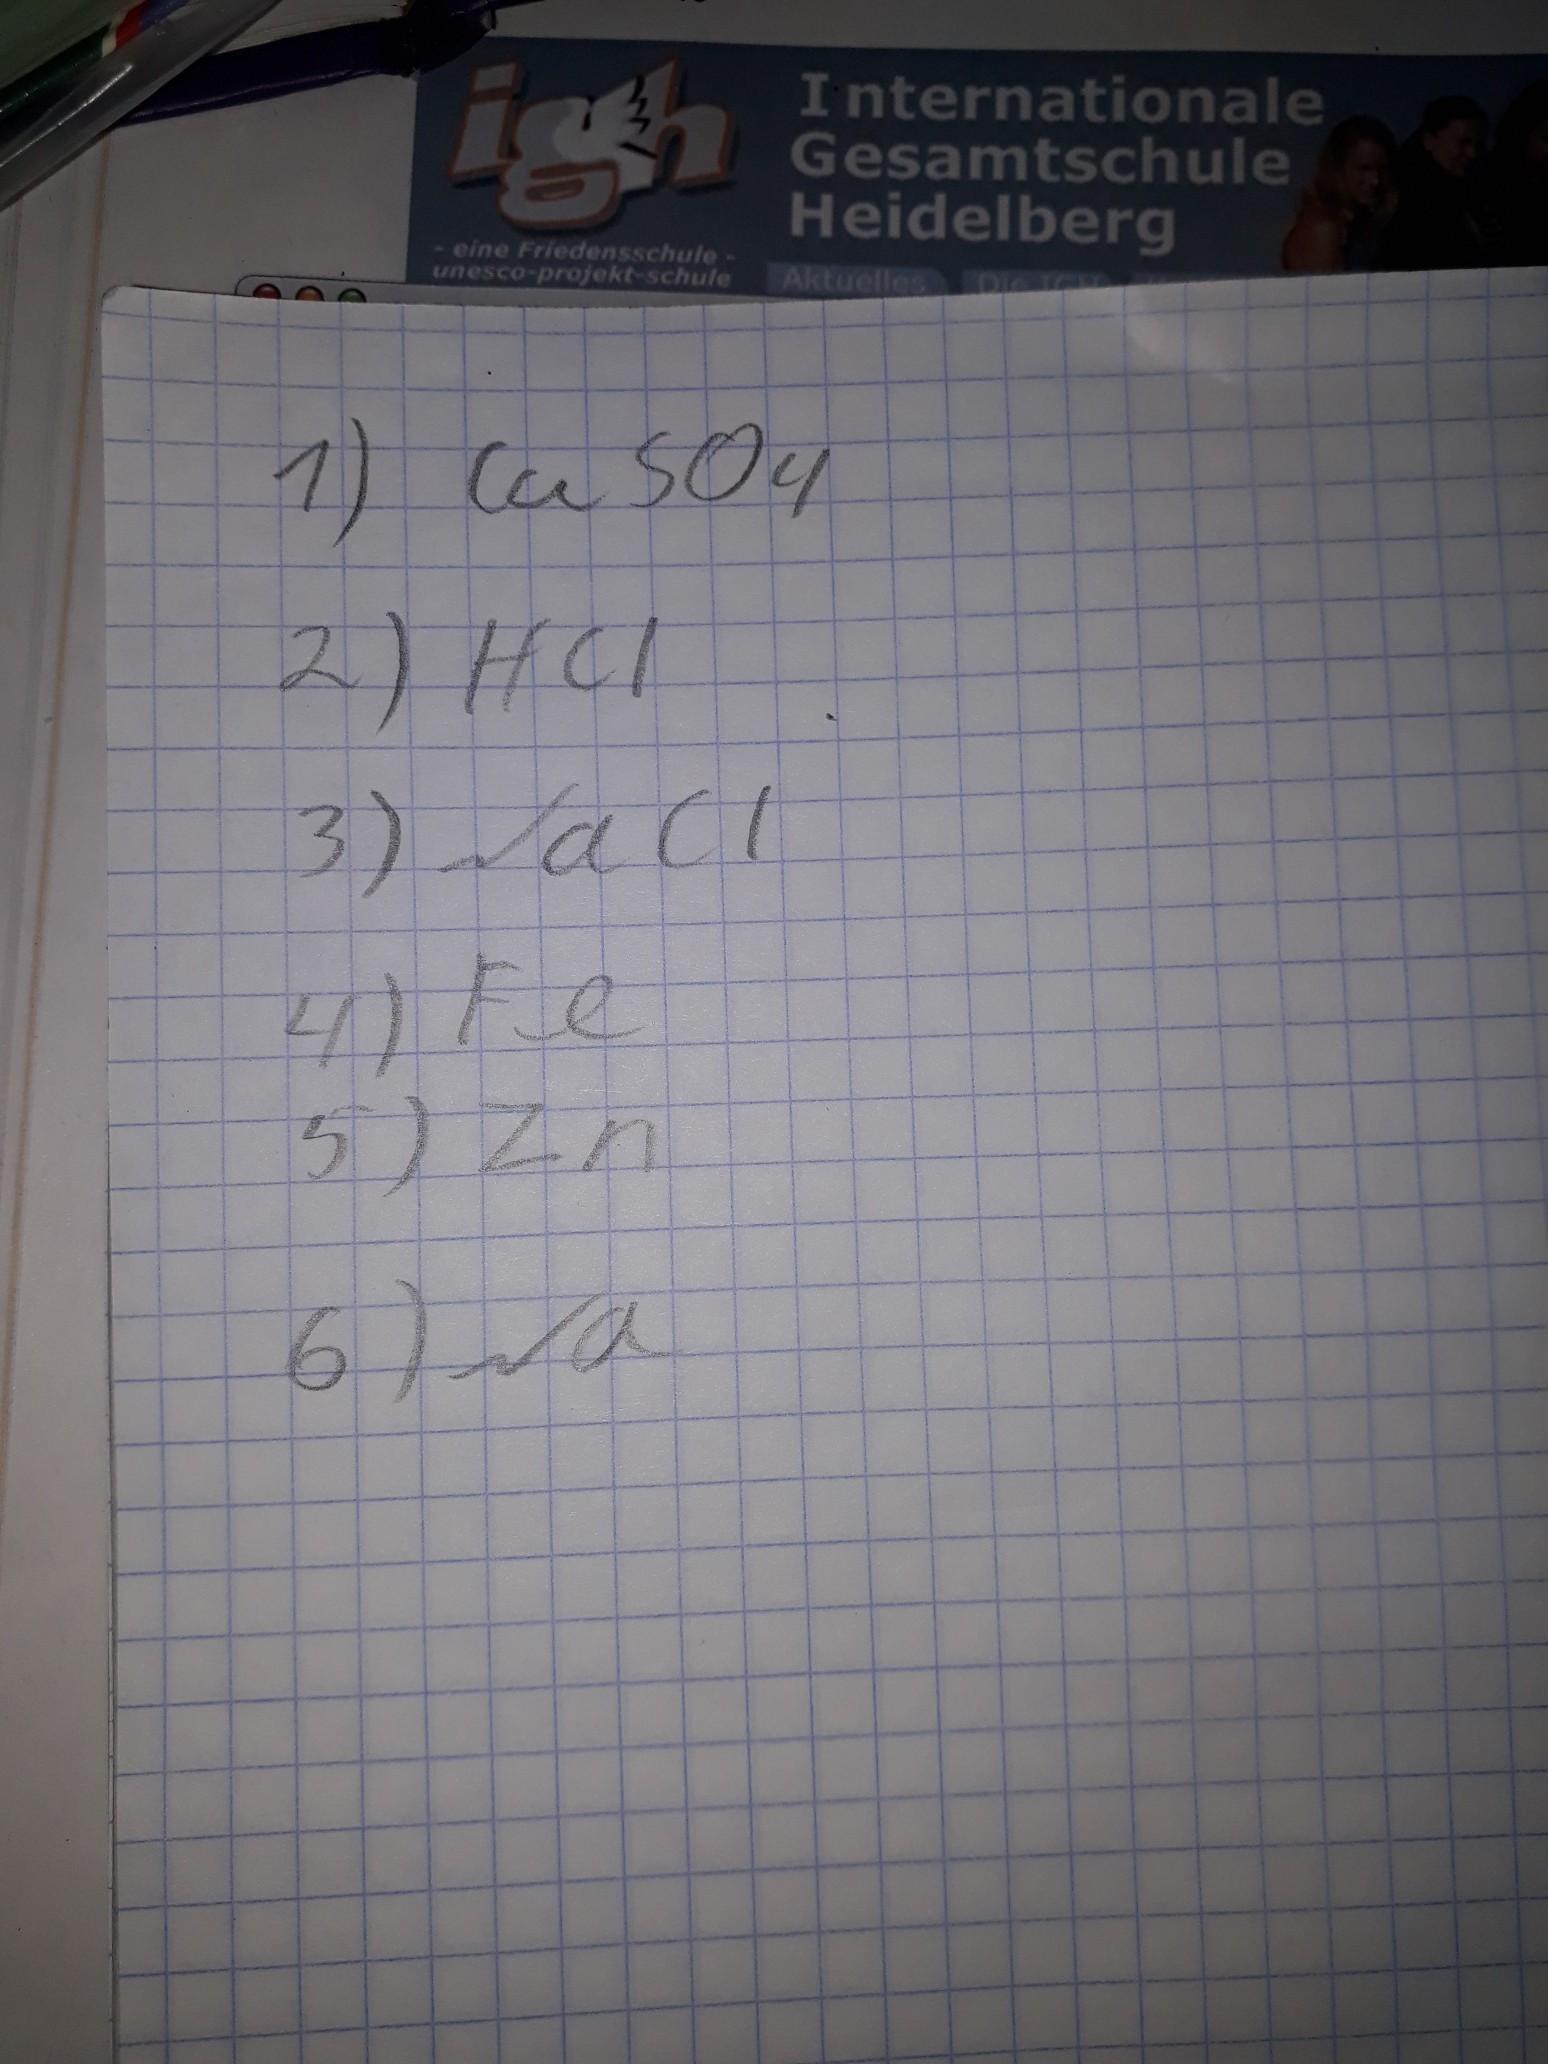 Internationale
Gesamtschule
Heidelberg
igh
- eine Friedensschule -
unesco-projekt-schule
Aktuelles Die IGH
1) CuSO4
2) HCl
3) NaCl
4) Fe
5) Zn
6) Na